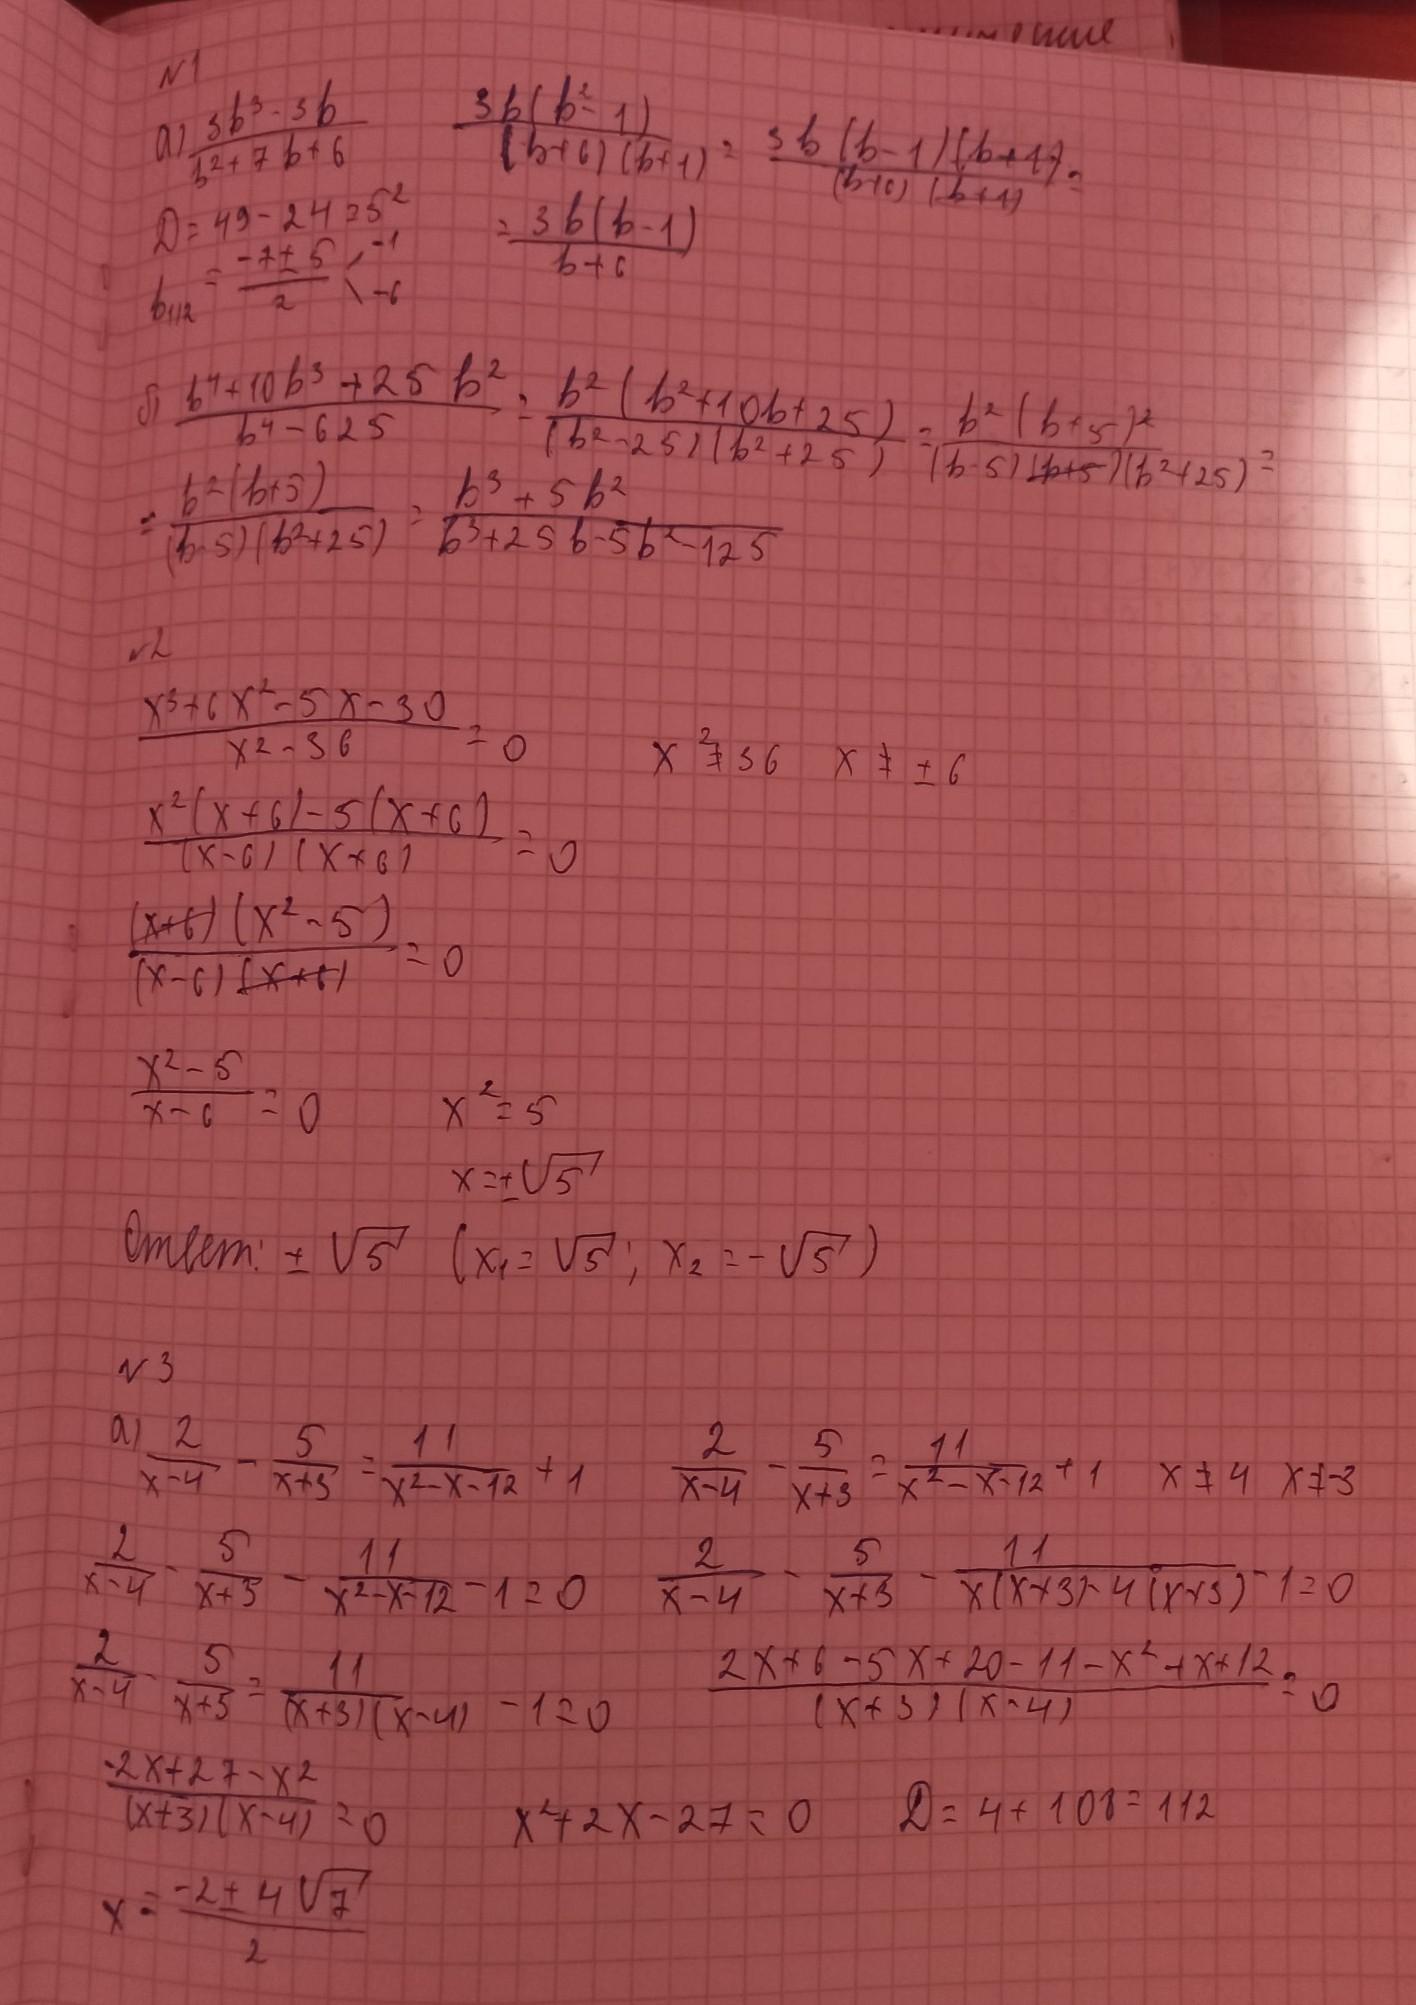 №1
а) (3b³-3b)/(b²+7b+6) (3b(b²-1))/((b+6)(b+1)) = (3b(b-1)(b+1))/((b+6)(b+1)) =
D=49-24=5² = (3b(b-1))/(b+6)
b₁,₂ = (-7±5)/2 -1 -6
б) (b⁴+10b³+25b²)/(b⁴-625) = (b²(b²+10b+25))/((b²-25)(b²+25)) = (b²(b+5)²)/((b-5)(b+5)(b²+25)) =
= (b²(b+5))/((b-5)(b²+25)) = (b³+5b²)/(b³+25b-5b²-125)
№2
(x³+6x²-5x-30)/(x²-36) = 0 x²≠36 x≠±6
(x²(x+6)-5(x+6))/((x-6)(x+6)) = 0
((x+6)(x²-5))/((x-6)(x+6)) = 0
(x²-5)/(x-6) = 0 x²=5
x=±√5
Ответ: ±√5 (x₁=√5; x₂=-√5)
№3
а) 2/(x-4) - 5/(x+3) = 11/(x²-x-12) + 1 2/(x-4) - 5/(x+3) = 11/(x²-x-12) + 1 x≠4 x≠-3
2/(x-4) - 5/(x+3) - 11/(x²-x-12) - 1 = 0 2/(x-4) - 5/(x+3) - 11/(x(x+3)-4(x+3)) - 1 = 0
2/(x-4) - 5/(x+3) = 11/((x+3)(x-4)) - 1 = 0 (2x+6-5x+20-11-x²+x+12)/((x+3)(x-4)) = 0
(-2x+27-x²)/((x+3)(x-4)) = 0 x²+2x-27=0 D=4+108=112
x = (-2±4√7)/2